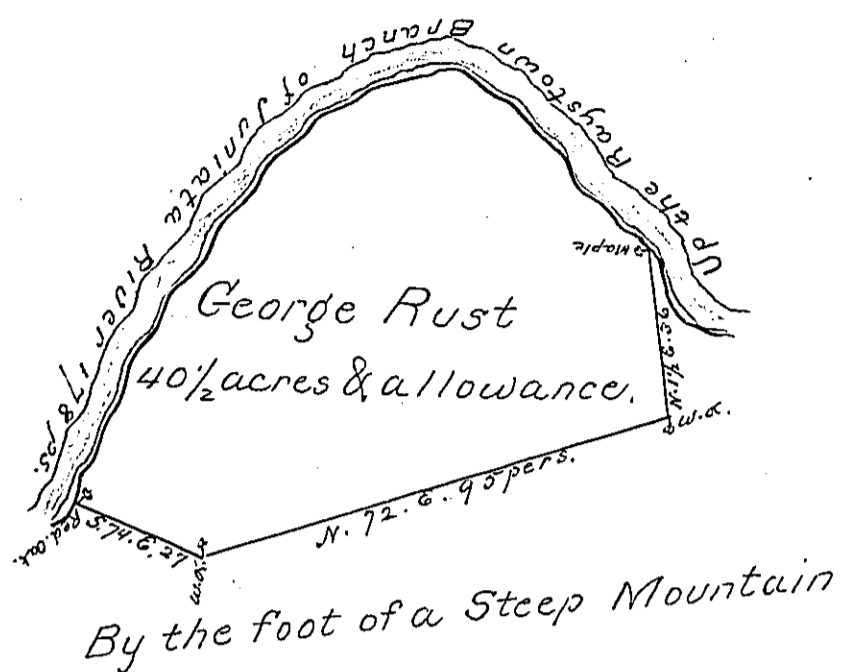 Up the Raystown Branch of Juniata River 178 ps.
Maple
George Rust
40 1/2 acres & allowance.
W.O.
N. 72. E. 95 pers.
Red. Oak.
S. 74. E. 27
W.O.
By the foot of a Steep Mountain